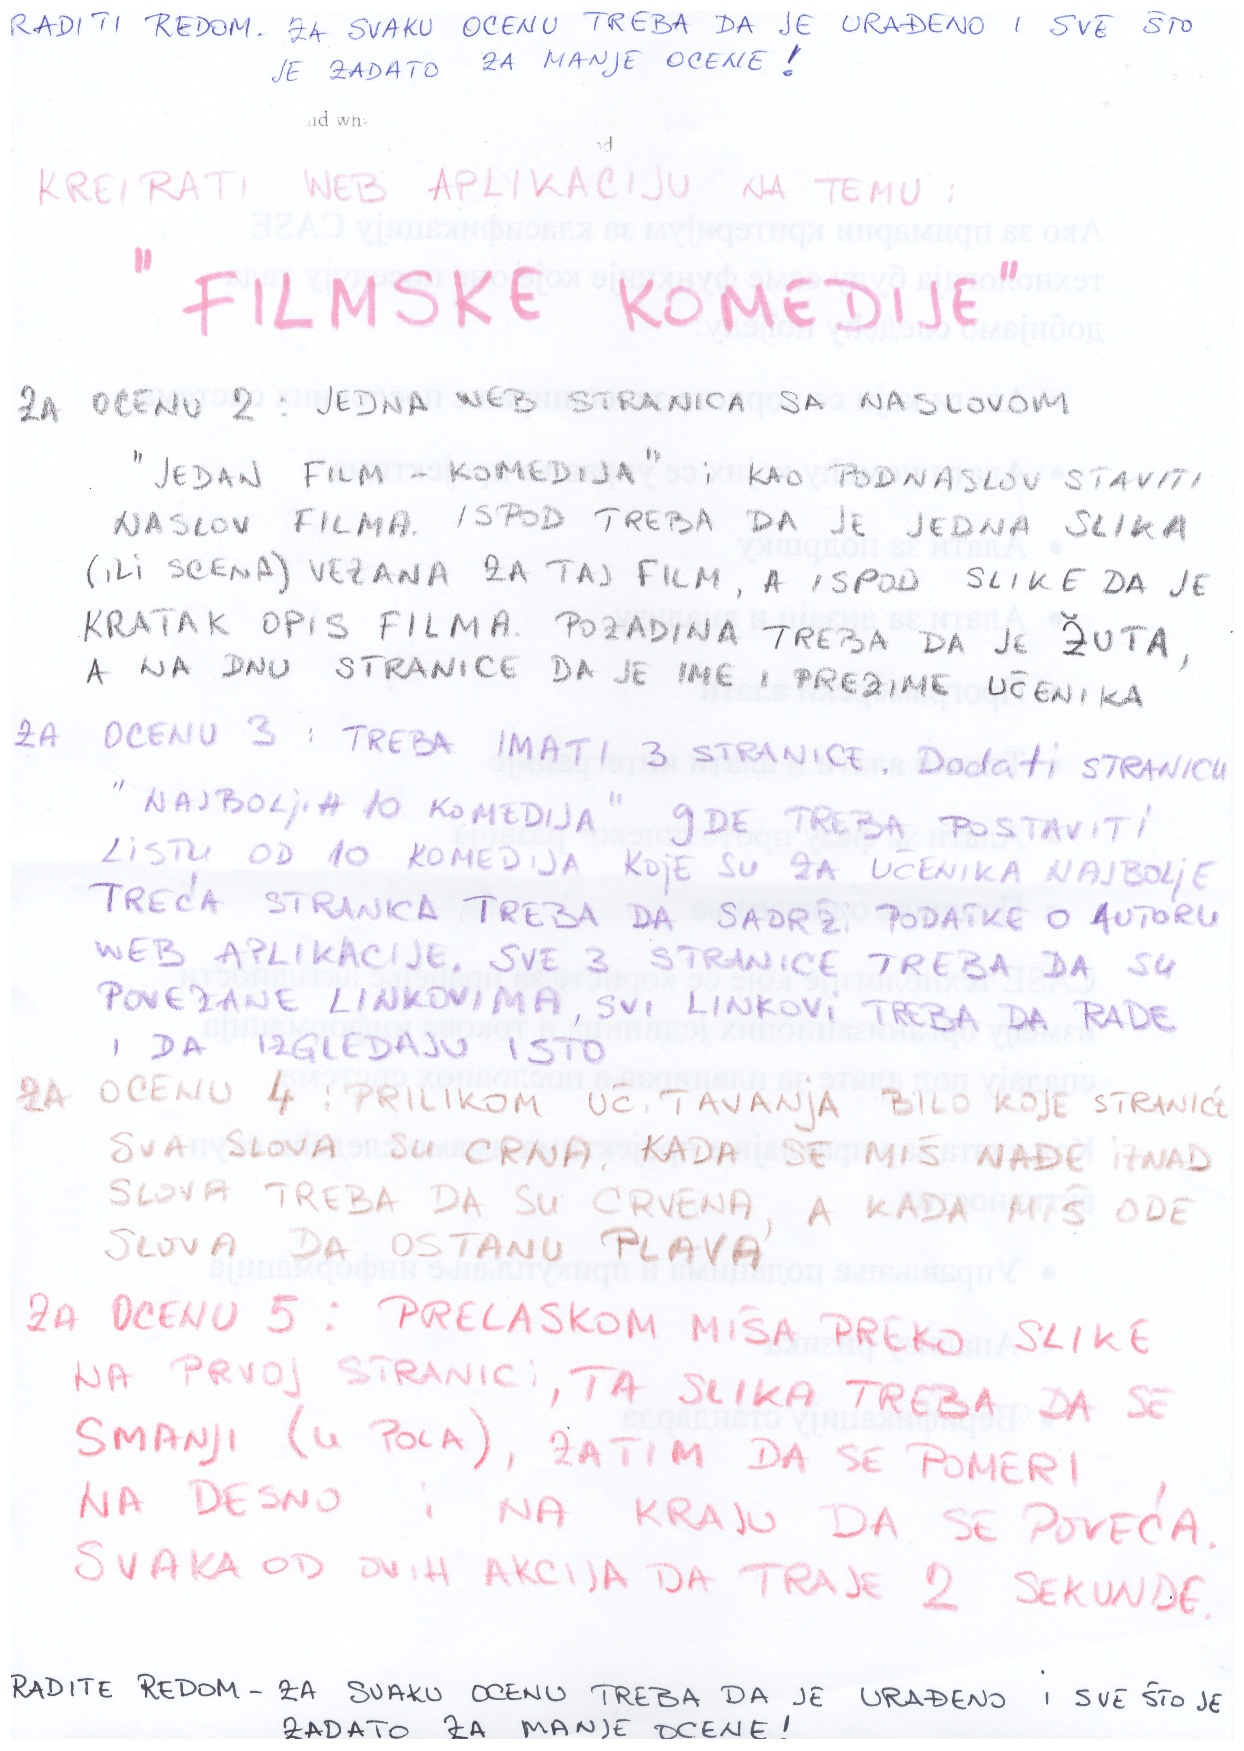 RADITI REDOM. ZA SVAKU OCENU TREBA DA JE URAĐENO I SVE ŠTO
JE ZADATO ZA MANJE OCENE!
KREIRATI WEB APLIKACIJU NA TEMU:
"FILMSKE KOMEDIJE"
ZA OCENU 2: JEDNA WEB STRANICA SA NASLOVOM
"JEDAN FILM - KOMEDIJA" i KAO PODNASLOV STAVITI
NASLOV FILMA. ISPOD TREBA DA JE JEDNA SLIKA
(ILI SCENA) VEZANA ZA TAJ FILM, A ISPOD SLIKE DA JE
KRATAK OPIS FILMA. POZADINA TREBA DA JE ŽUTA,
A NA DNU STRANICE DA JE IME I PREZIME UČENIKA
ZA OCENU 3: TREBA IMATI 3 STRANICE. Dodati STRANICU
"NAJBOLJIH 10 KOMEDIJA" gDE TREBA POSTAVITI
LISTU OD 10 KOMEDIJA KOJE SU ZA UČENIKA NAJBOLJE
TREĆA STRANICA TREBA DA SADRŽI PODATKE O AUTORU
WEB APLIKACIJE. SVE 3 STRANICE TREBA DA SU
POVEZANE LINKOVIMA, SVI LINKOVI TREBA DA RADE
I DA IZGLEDAJU ISTO
ZA OCENU 4: PRILIKOM UČITAVANJA BILO KOJE STRANICE
SVA SLOVA SU CRNA. KADA SE MIŠ NAĐE IZNAD
SLOVA TREBA DA SU CRVENA, A KADA MIŠ ODE
SLOVA DA OSTANU PLAVA
ZA OCENU 5: PRELASKOM MIŠA PREKO SLIKE
NA PRVOJ STRANICI, TA SLIKA TREBA DA SE
SMANJI (U POLA), ZATIM DA SE POMERI
NA DESNO i NA KRAJU DA SE POVEĆA.
SVAKA OD OVIH AKCIJA DA TRAJE 2 SEKUNDE.
RADITE REDOM - ZA SVAKU OCENU TREBA DA JE URAĐENO I SVE ŠTO JE
ZADATO ZA MANJE OCENE!